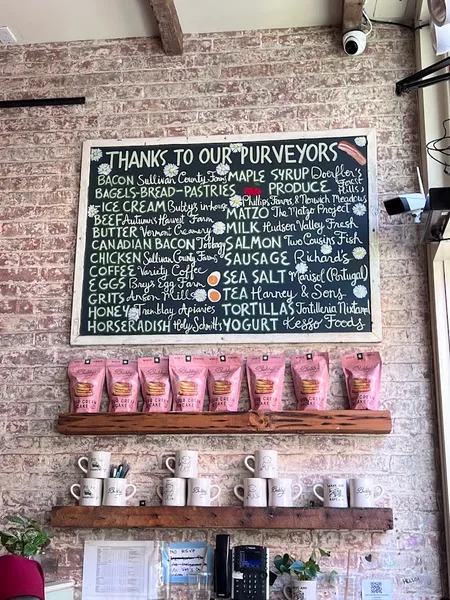 THANKS TO OUR PURVEYORS
BACON Sullivan County Farms
BAGELS-BREAD-PASTRIES
ICE CREAM Bubby's in-house
BEEF Autumn's Harvest Farm
BUTTER Vermont Creamery
CANADIAN BACON
CHICKEN Sullivan County Farms
COFFEE Variety Coffee
EGGS Brey's Egg Farm
GRITS Anson Mills
HONEY Tremblay Apiaries
HORSERADISH Holy Schmitt's
MAPLE SYRUP Doerfler's
PRODUCE
Phillips Farms, & Norwich Meadows
MATZO The Matzo Project
MILK Hudson Valley Fresh
SALMON Two Cousins Fish
SAUSAGE Richards
SEA SALT Marisol (Portugal)
TEA Harney & Sons
TORTILLAS Tortilleria Nixtamal
YOGURT Kesso Foods
Bubby's
SOUR CREAM